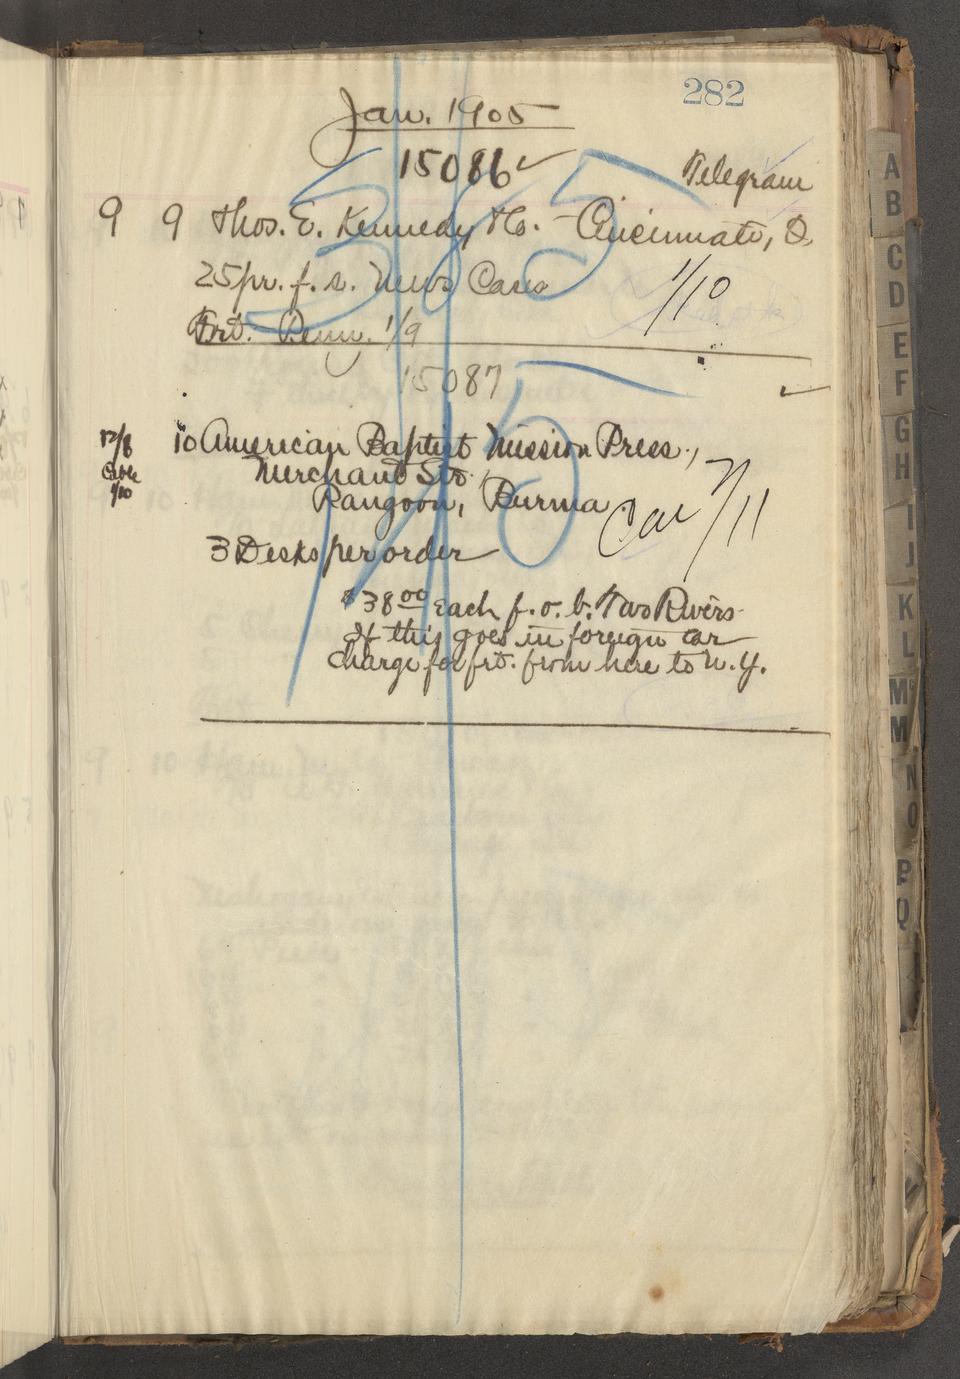 282
Jan. 1905
15086 ✓
Telegram
9 9 Thos. E. Kennedy Co. - Cincinnati, O.
25 pr. f. s. News Cases 1/10
Frt. Penn. 1/9
15087 ✓
12/8 10 American Baptist Mission Press,
Merchant Str.,
1/10 Rangoon, Burma
Car 7/11
3 Desks per order
$38.00 Each f. o. b. Two Rivers
If this goes in foreign car
charge for frt. from here to N. Y.
A
B
C
D
E
F
G
H
I
J
K
L
Mc
M
N
O
P
Q